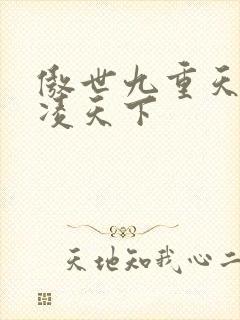 傲世九重天
凌天下
天地知我心二